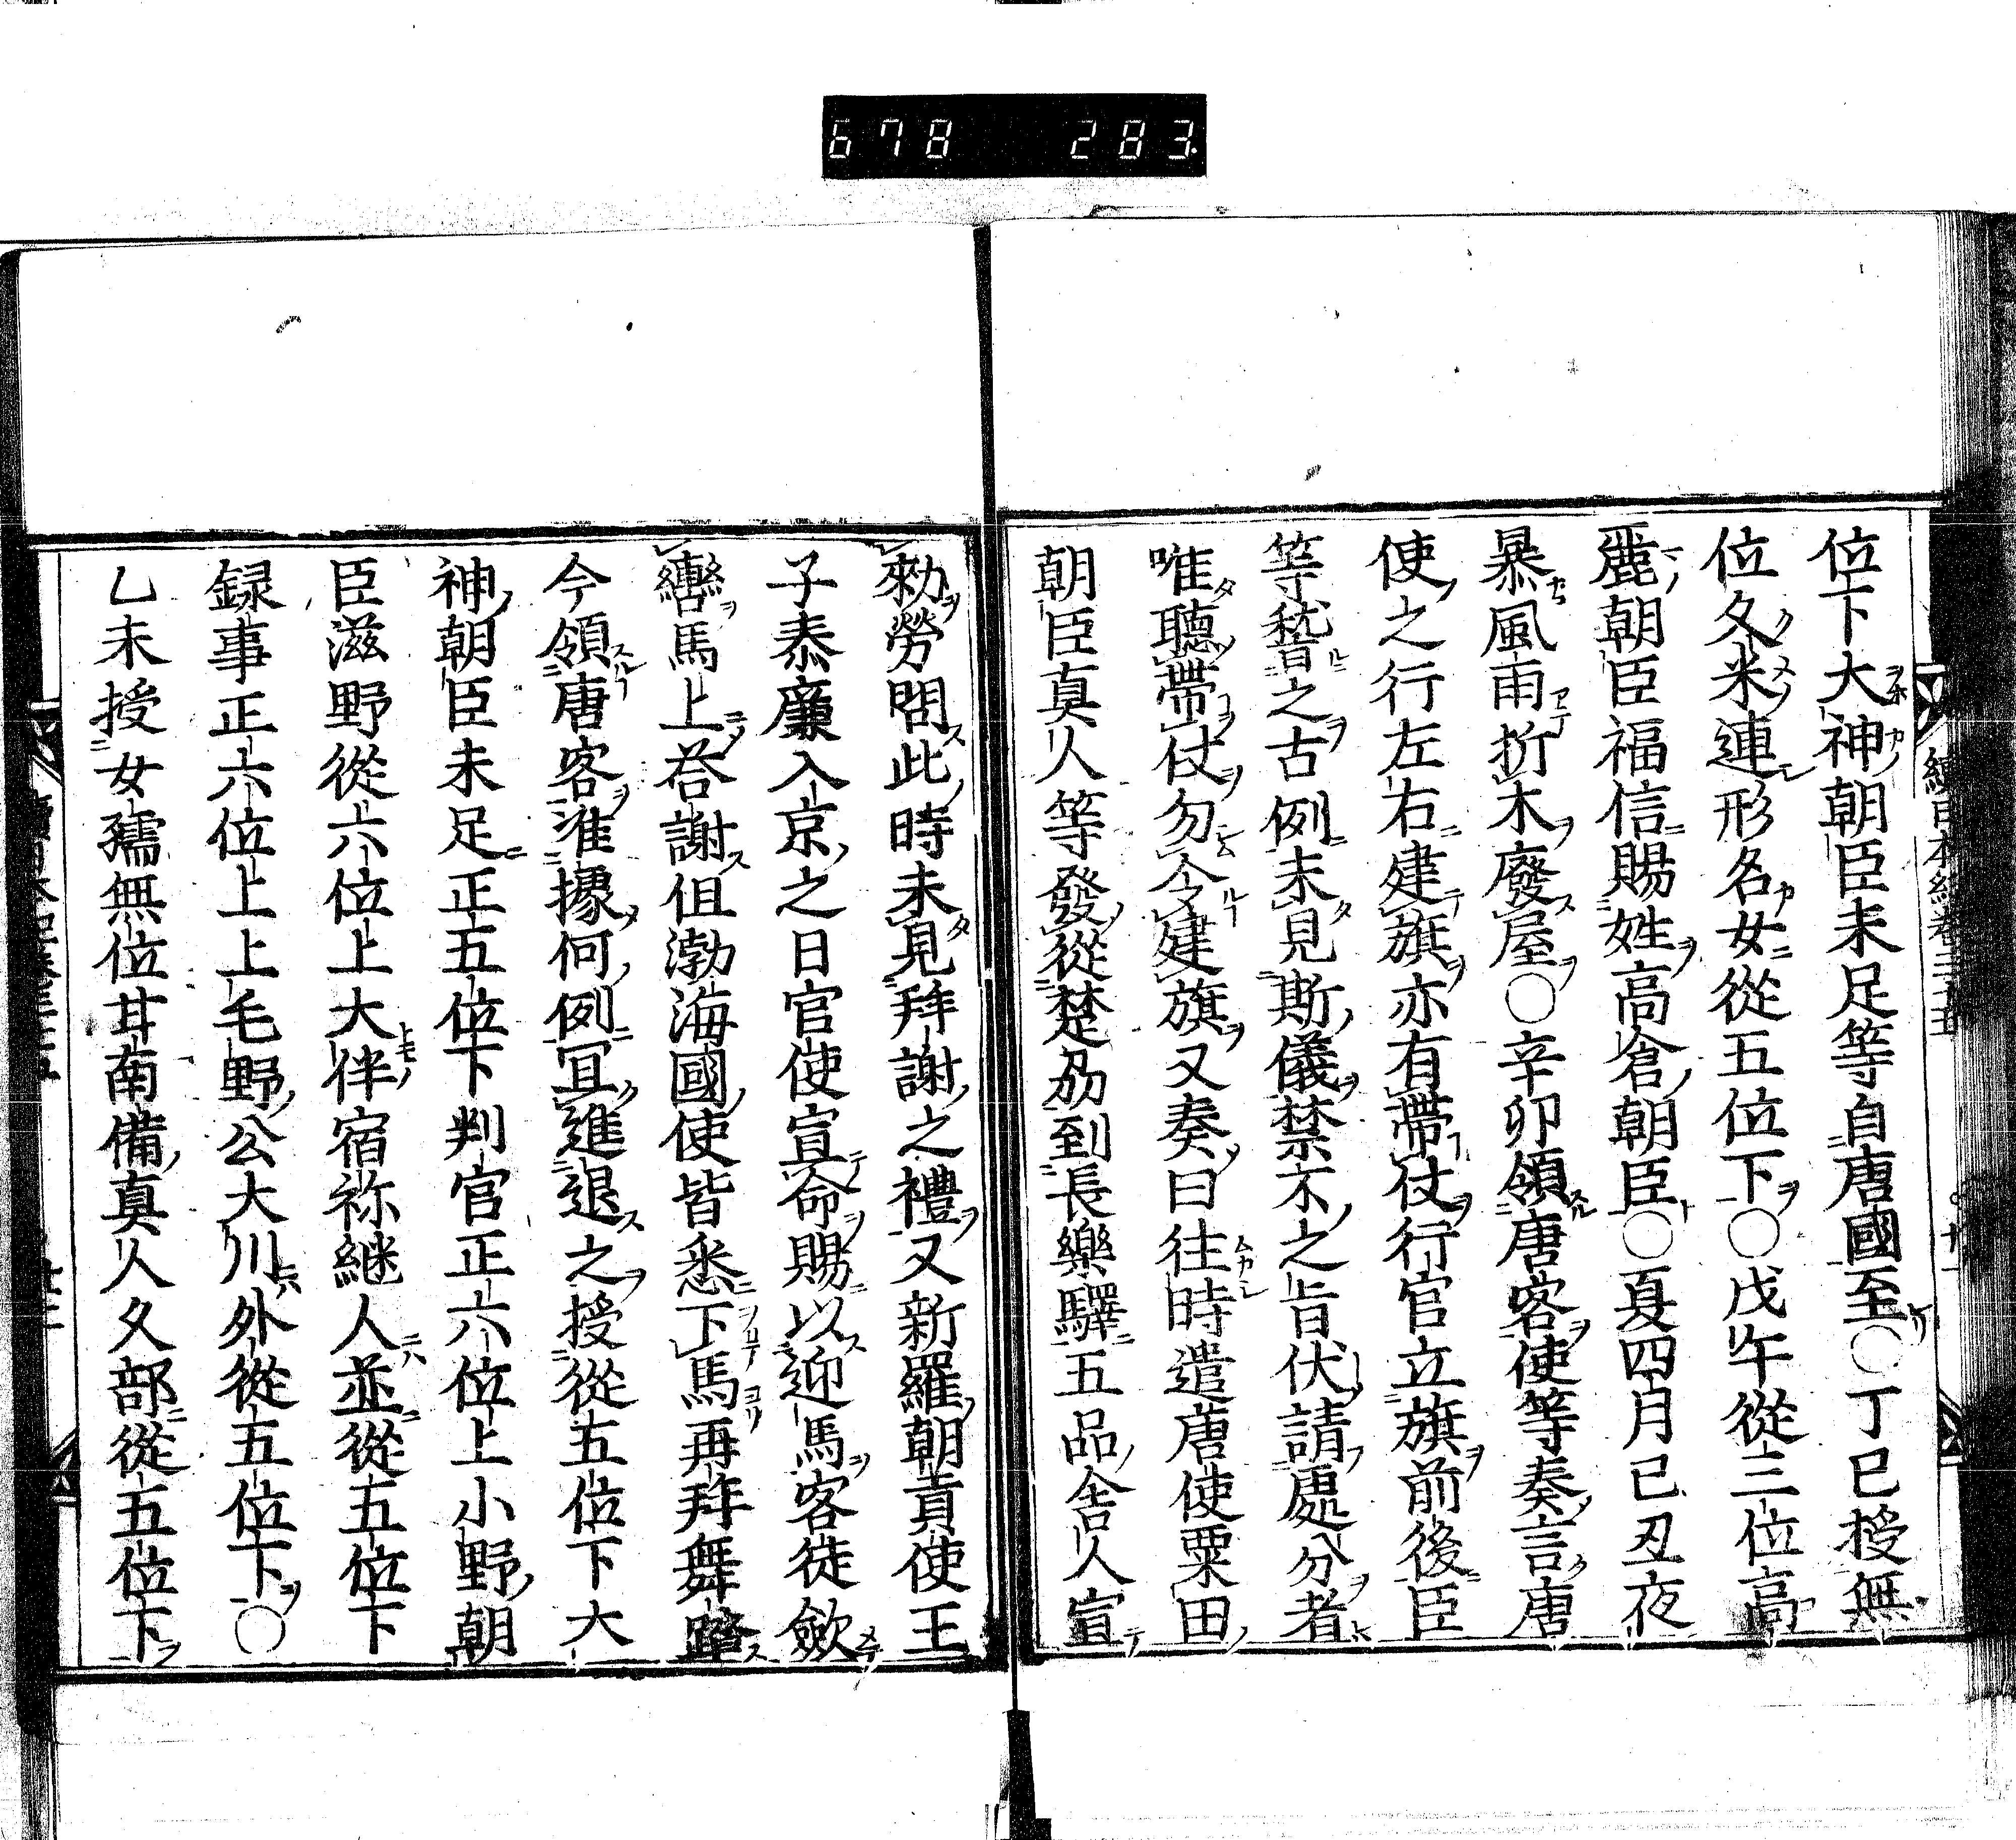 678 283
位下大神朝臣末足等自唐國至○丁巳授無
位久米連形名女從五位下○戊午從三位高
麗朝臣福信賜姓高倉朝臣○夏四月己丑夜
暴風雨折木廢屋○辛卯領唐客使等奏言唐
使之行左右建旗亦有帶仗行官立旗前後臣
等稽之古例未見斯儀禁不之旨伏請處分者
唯聽帶仗勿令建旗又奏曰往時遣唐使粟田
朝臣真人等發從楚刕到長樂驛五品舍人宣
勑勞問此時未見拜謝之禮又新羅朝貢使王
子泰廉入京之日官使宣命賜以迎馬客徒斂
轡馬上荅謝但渤海國使皆悉下馬再拜舞踏
今領唐客准據何例冝進退之授從五位下大
神朝臣末足正五位下判官正六位上小野朝
臣滋野從六位上大伴宿祢継人並從五位下
録事正六位上上毛野公大川外從五位下○
乙未授女孺無位甘南備真人久部從五位下